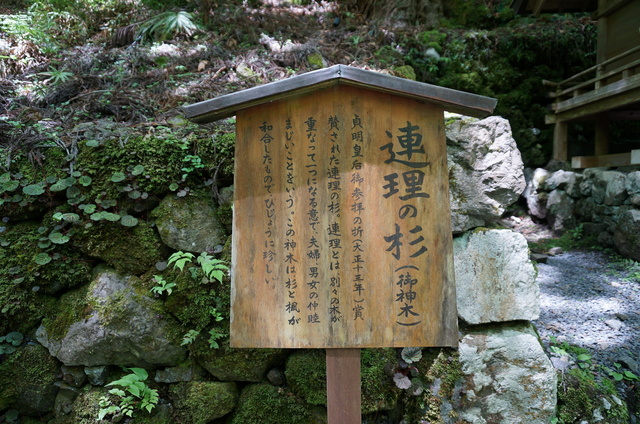 連理の杉(御神木)
貞明皇后御参拝の折(大正十三年)賞
賛された連理の杉、連理とは、別々の木が
重なって一つになる意で、夫婦、男女の仲睦
まじいことをいう。この神木は杉と楓が
和合したものでひじょうに珍しい